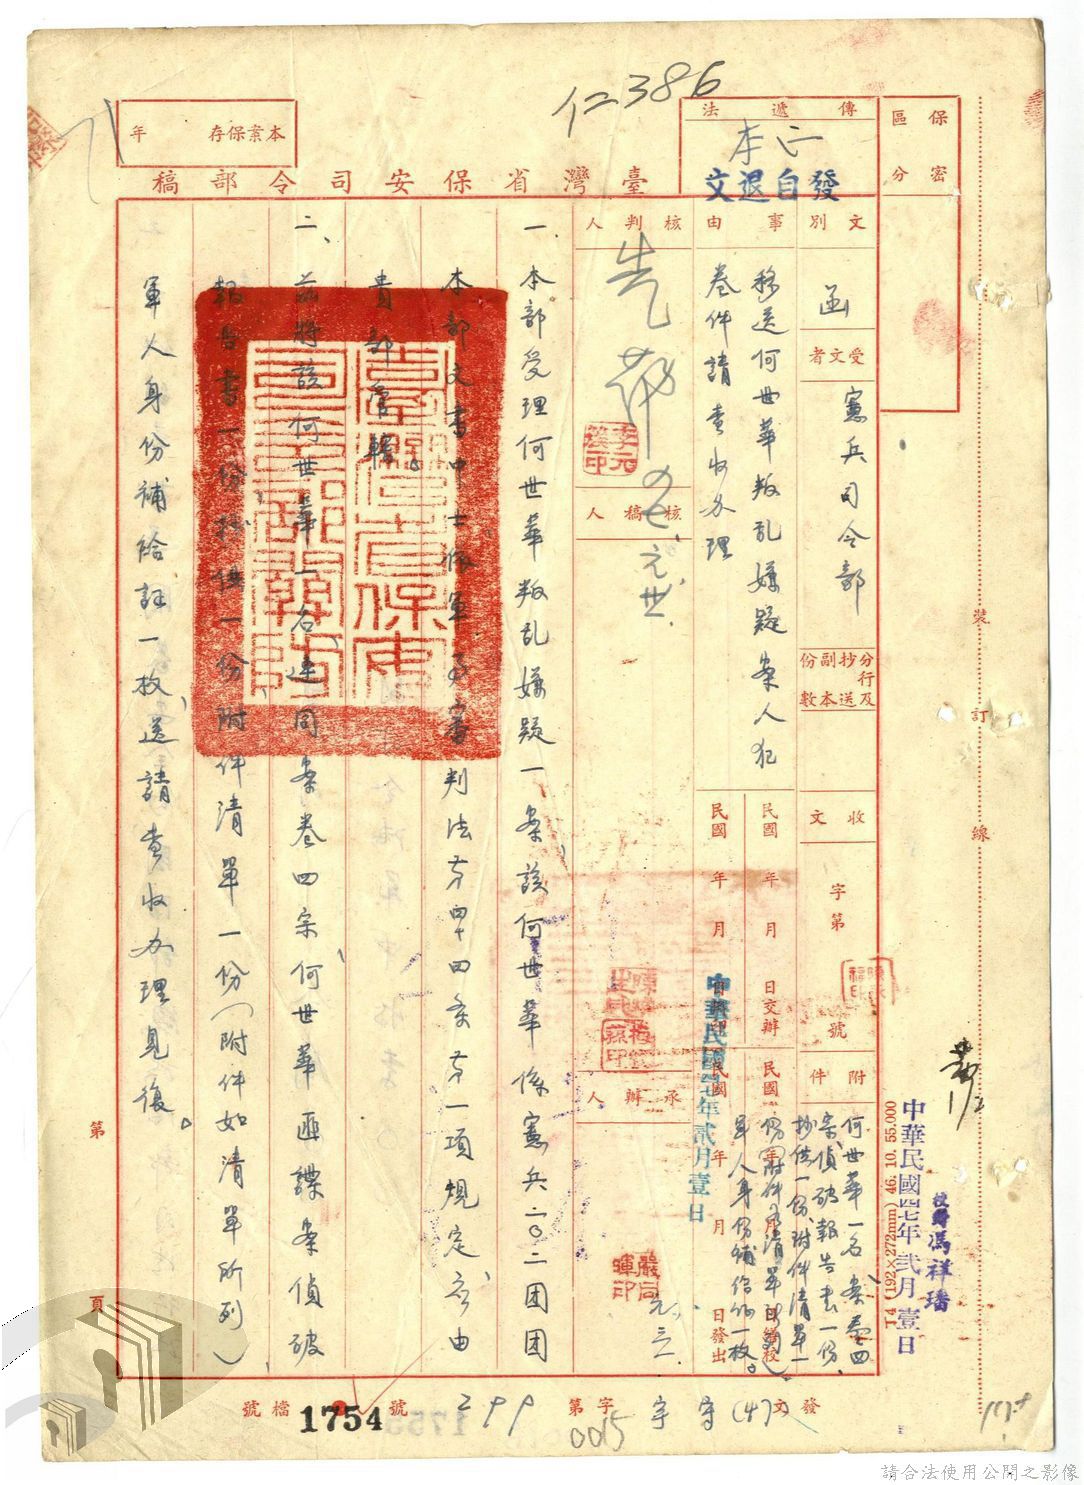 仁2386
保密
區分
傳遞法
本 年
發自退文
本案保存 年
臺灣省保安司令部稿
文別
函
受文者
憲兵司令部
分行及抄送副本份數
收文
字第 號
附件
何世華一名、案卷四
宗、偵破報告書一份、
抄供一份、附件清單一
份(附件如清單所列)
軍人身份補給証一枚。
事由
移送何世華叛乱嫌疑案人犯
卷件請查收办理
民國 年 月 日交辦
民國 年 月 日繕校
民國 年 月 日
民國 年 月 日發出
中華民國四七年貳月壹日
核判人
核稿人
承辦人
李元簇印
嚴同暉印
元、世.
元、三.
一、本部受理何世華叛乱嫌疑一案、該何世華係憲兵二〇二团团
本部文書中士依軍事審判法第四十四条第一項規定、应由
貴部管轄。
二、茲將該何世華一名連同案卷四宗、何世華匪諜案偵破
報告書一份、抄供一份、附件清單一份(附件如清單所列)
軍人身份補給証一枚、送請查收办理見復。
裝
訂
線
第 頁
T4 (192×272mm) 46. 10. 55.000
中華民國四七年貳月壹日
校對馮祥璠
發文
(47)
字第
299
號
0015
檔號
1754
請合法使用公開之影像